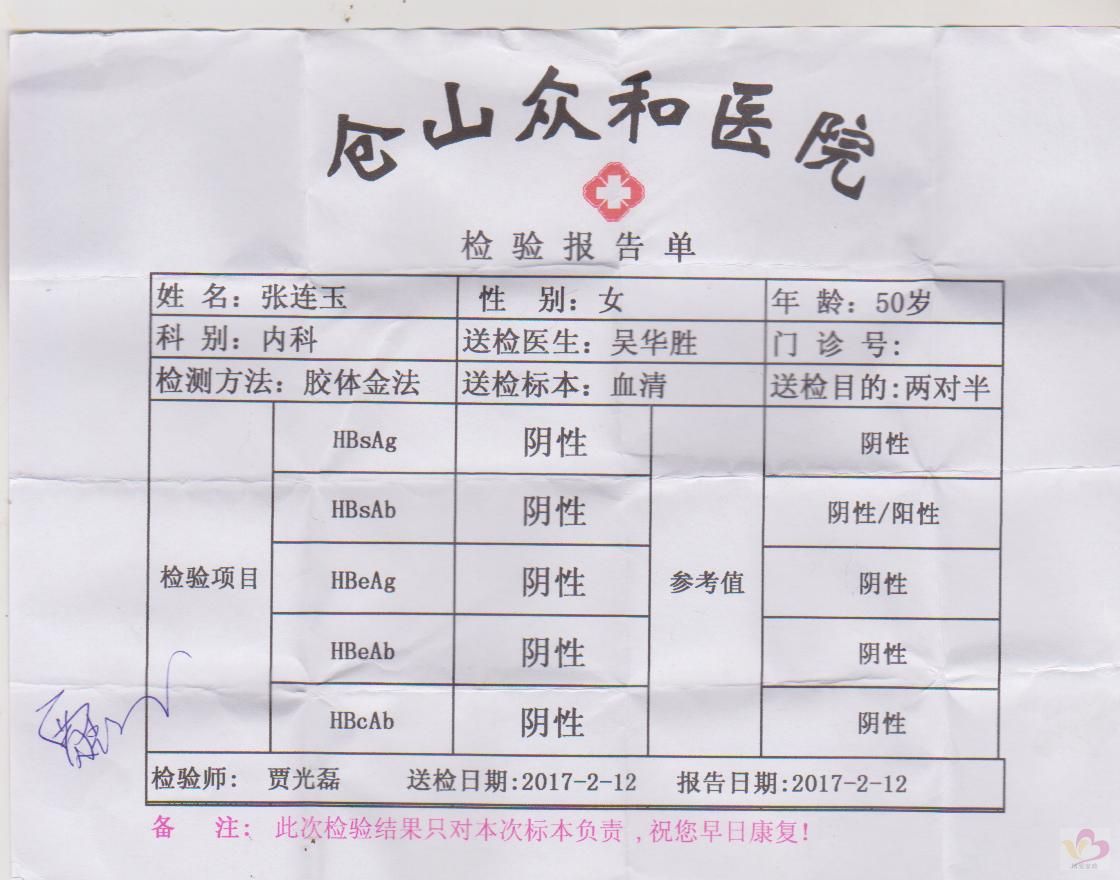 仓山众和医院
检验报告单
姓 名：张连玉 性 别：女 年 龄：50岁
科 别：内科 送检医生：吴华胜 门 诊 号：
检测方法：胶体金法 送检标本：血清 送检目的：两对半
HBsAg 阴性 阴性
HBsAb 阴性 阴性/阳性
检验项目 HBeAg 阴性 参考值 阴性
HBeAb 阴性 阴性
HBcAb 阴性 阴性
检验师： 贾光磊 送检日期：2017-2-12 报告日期：2017-2-12
备 注： 此次检验结果只对本次标本负责，祝您早日康复！